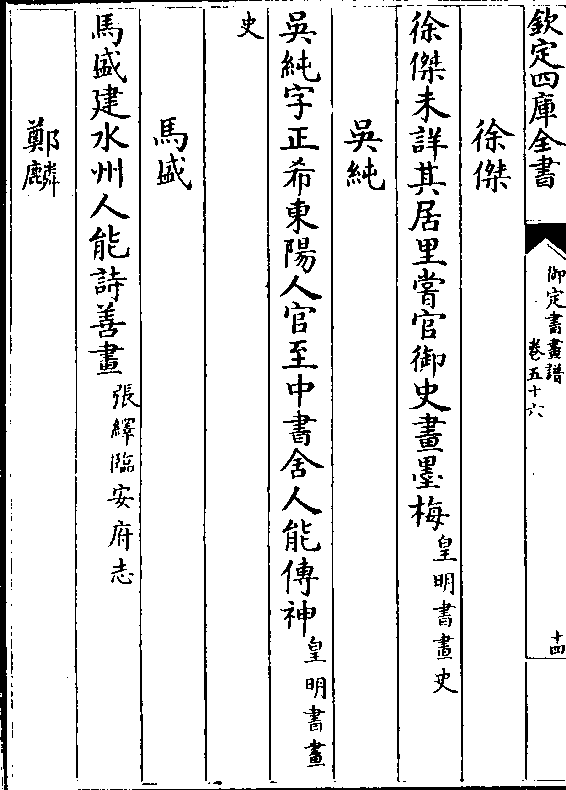 欽定四庫全書
御定書畫譜
卷五十六
十四
徐傑
徐傑未詳其居里嘗官御史畫墨梅皇明書畫史
吳純
吳純字正希東陽人官至中書舍人能傳神皇明書畫
史
馬盛
馬盛建水州人能詩善畫張繹臨安府志
鄭麟